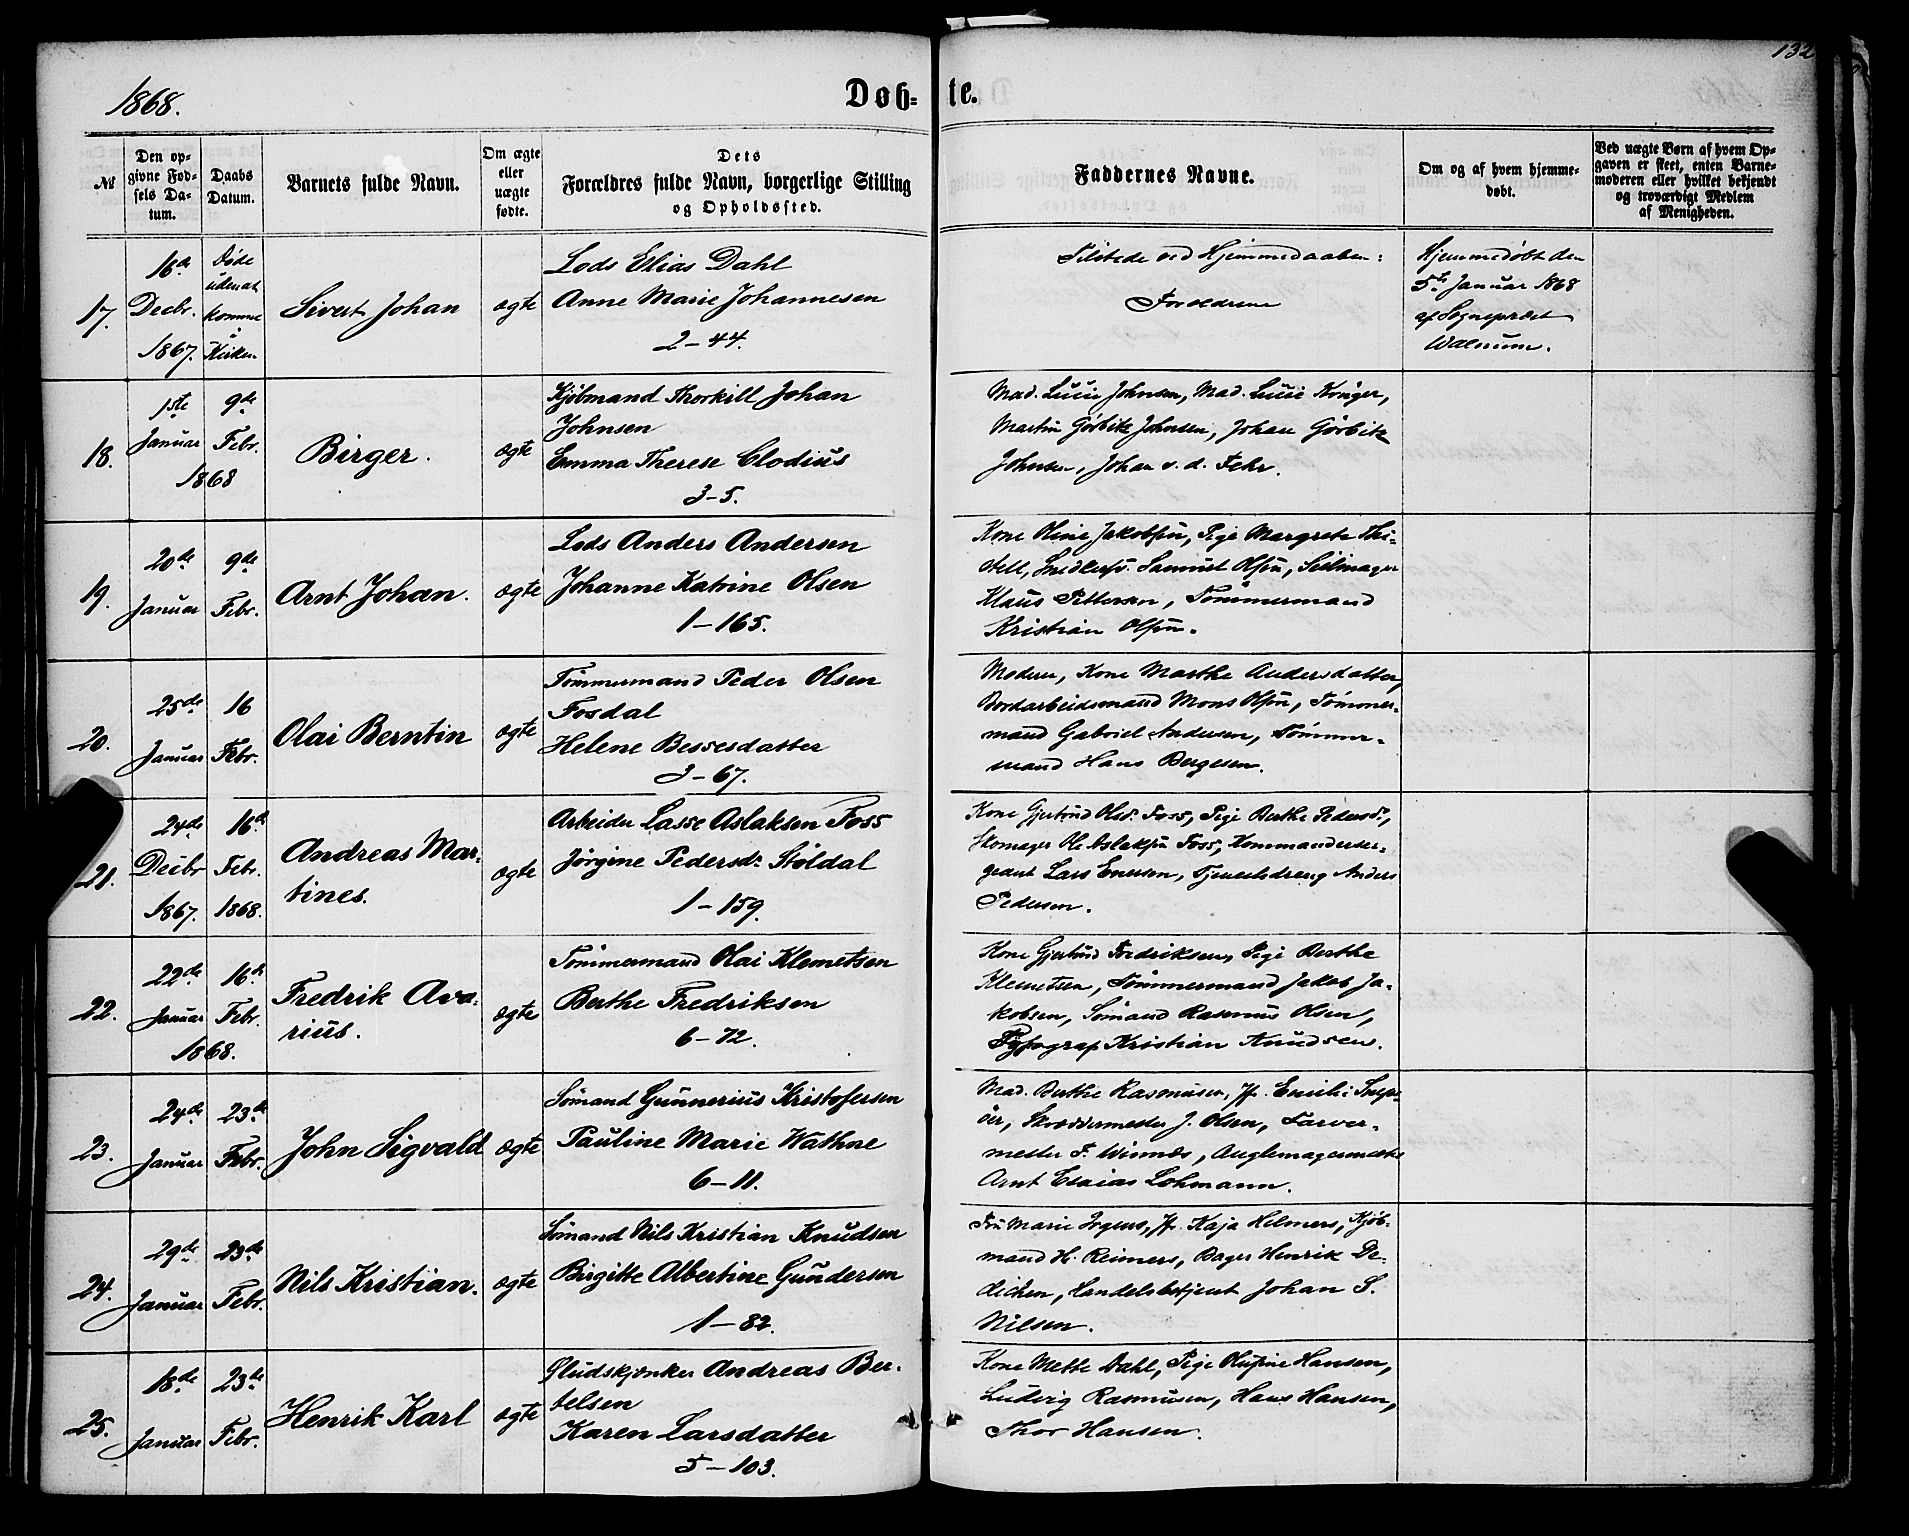 132
1868.
Døb- te.
№
Den op-
givne Fød-
sels Da-
tum.
Daabs
Datum.
Barnets fulde Navn.
Om ægte
eller
uægte
fødte.
Dets
Forældres fulde Navn, borgerlige Stilling
og Opholdssted.
Faddernes Navne.
Om og af hvem hjemme-
døbt.
Ved uægte Børn af hvem Op-
gaven er skeet, enten Barne-
moderen eller hvilket bekjendt
og troværdigt Medlem
af Menigheden.
17.
16de
Decbr.
1867.
Døde
uden at
komme
i
Kirken
Sivert Johan
ægte
Lods Elias Dahl
Anne Marie Johannesen
2-44.
Tilstede ved Hjemmedaaben:
Forældrene
Hjemmedøbt den
5te Januar 1868
af Sognepræst
Walnum.
18.
1ste
Januar
9de
Febr.
1868
Birger.
ægte
Kjøbmand Thorkill Johan
Johnsen
Emma Therese Clodius
3-5.
Mad. Lucie Johnsen, Mad. Lucie Krüger,
Martin Görbitz Johnsen, Johan Görbitz
Johnsen, Johan v. d. Fehr.
19.
20de
Januar
9de
Febr.
Arnt Johan.
ægte
Lods Anders Andersen
Johanne Katrine Olsen
1-165.
Kone Oline Jakobsen, Pige Margrete Thi-
stell, Samuel Olsen, Seilmager
Klaus Pettersen, Tømmermand
Kristian Olsen.
20.
25de
Januar
16
Febr.
Olai Berntin
ægte
Tømmermand Peder Olsen
Fosdal
Helene Bessesdatter
3-67.
Moderen, Kone Marthe Andersdatter,
Bordarbeidsmand Mons Olsen, Tømmer-
mand Gabriel Andersen, Tømmer-
mand Hans Bergesen.
21.
24de
Decbr
1867.
16de
Febr.
1868.
Andreas Mar-
tines.
ægte
Arbeider Lasse Aslaksen Foss
Jørgine Pedersdr. Støldal
1-159.
Kone Gjertrud Olsdr. Foss, Pige Berthe Pedersdr.,
Skomager Ole Aslaksen Foss, Kommandeerser-
geant Lars Enersen, Tjenestedreng Anders
Pedersen.
22.
22de
Januar
16de
Febr.
1868.
Fredrik Ava-
rius.
ægte
Tømmermand Olai Klemetsen
Berthe Fredriksen
6-72.
Kone Gjertrud Fredriksen, Pige Berthe
Klemetsen, Tømmermand Jakob Ja-
kobsen, Sømand Rasmus Olsen,
Typograf Kristian Knudsen.
23.
24de
Januar
23de
Febr.
John Sigvald
ægte
Sømand Gunnerius Kristofersen
Pauline Marie Wathne
6-11.
Mad. Berthe Rasmussen, Jfr. Emilie
Skræddermester J. Olsen, Farver-
mester F. Winnæs, Anglemagermester
Arnt Esaias Lohmann.
24.
29de
Januar
23de
Febr.
Nils Kristian.
ægte
Sømand Nils Kristian Knudsen
Birgitte Albertine Gundersen
1-82.
Fru Marie Irgens, Jfr. Kaja Helmers, Kjøb-
mand H. Reimers, Bager Henrik De-
dichen, Handelsbetjent Johan S.
Nilsen.
25.
18de
Januar
23de
Febr.
Henrik Karl
ægte
Øludskjænker Andreas Ber-
telsen
Karen Larsdatter
5-103.
Kone Mette Dahl, Pige Olufine Hansen,
Ludvig Rasmussen, Hans Hansen,
Thor Hansen.